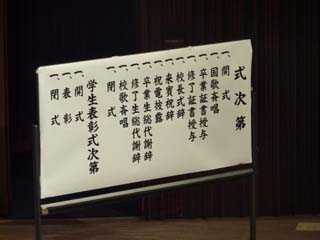 式次第
一、開式
一、国歌斉唱
一、卒業証書授与
一、修了証書授与
一、校長式辞
一、来賓祝辞
一、祝電披露
一、卒業生総代謝辞
一、修了生総代謝辞
一、校歌斉唱
一、閉式
学生表彰式次第
一、開式
一、表彰
一、閉式